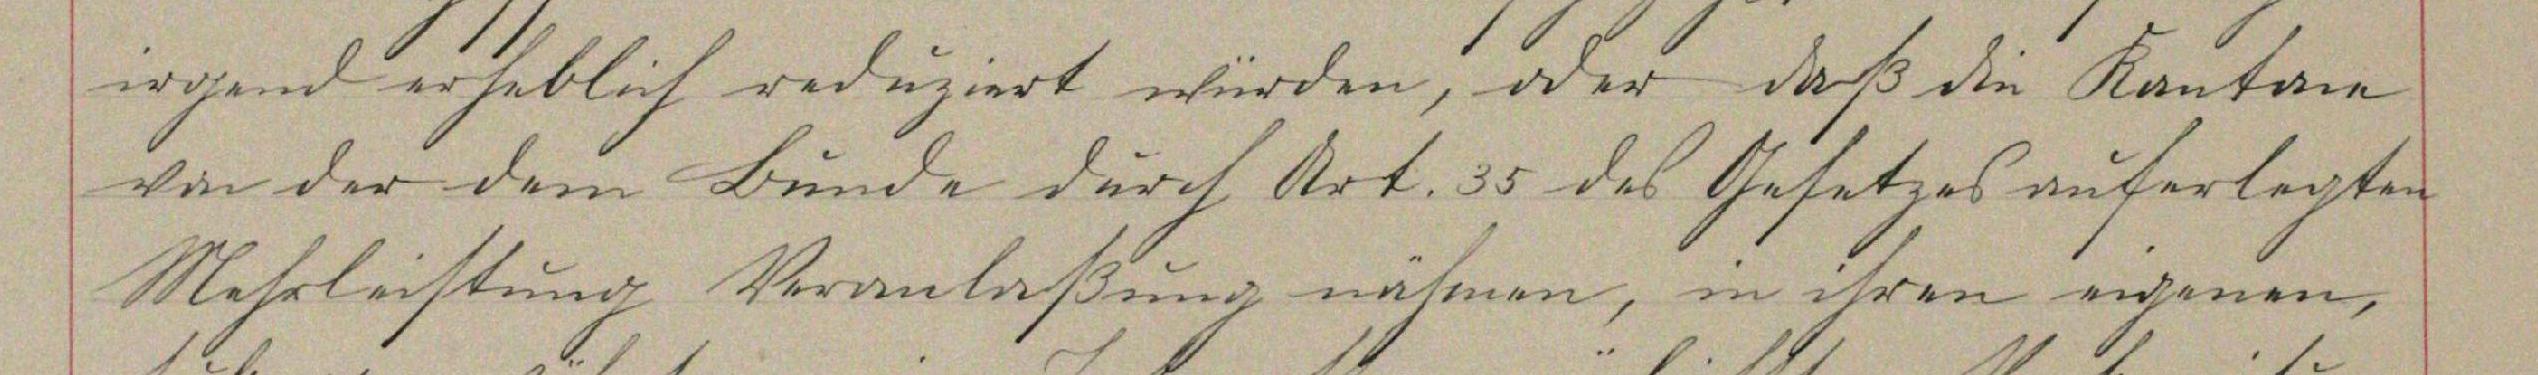 irgend erheblich reduziert würden, oder daß die Kantone
von der dem Bunde durch Art. 35 des Gesetzes auferlegten
Mehrleistung Veranlaßung nähmen, in ihren eigenen,